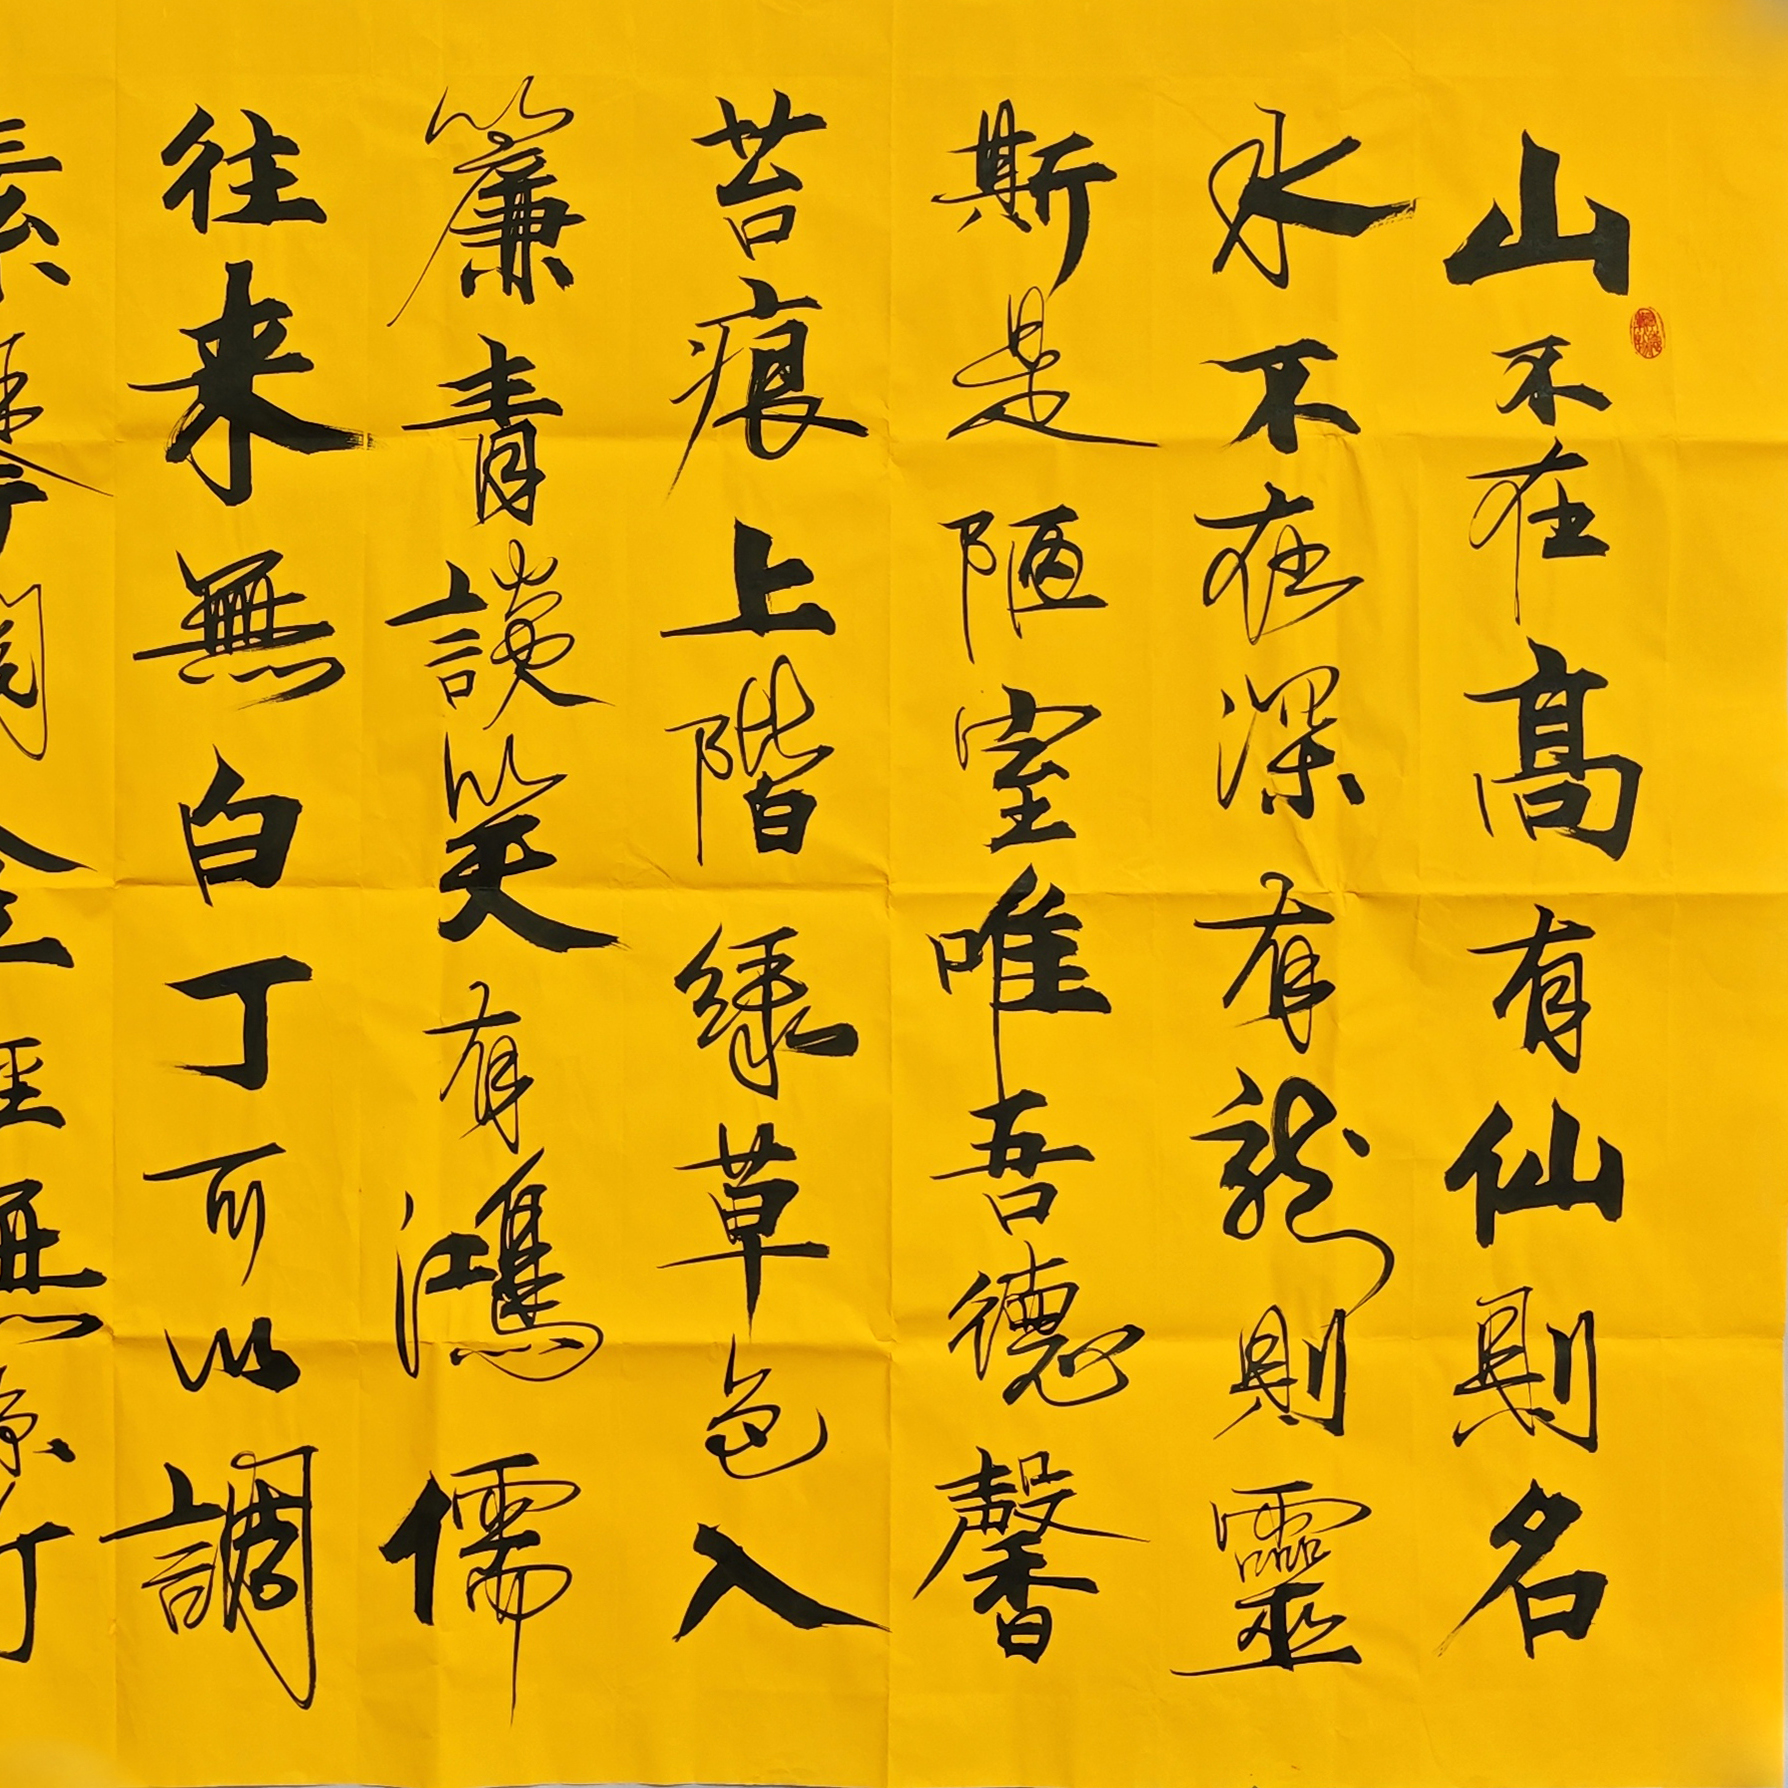 山不在高有仙則名
水不在深有龍則靈
斯是陋室唯吾德馨
苔痕上階綠草色入
簾青談笑有鴻儒
往来無白丁可以調
素琴閱金經無絲竹